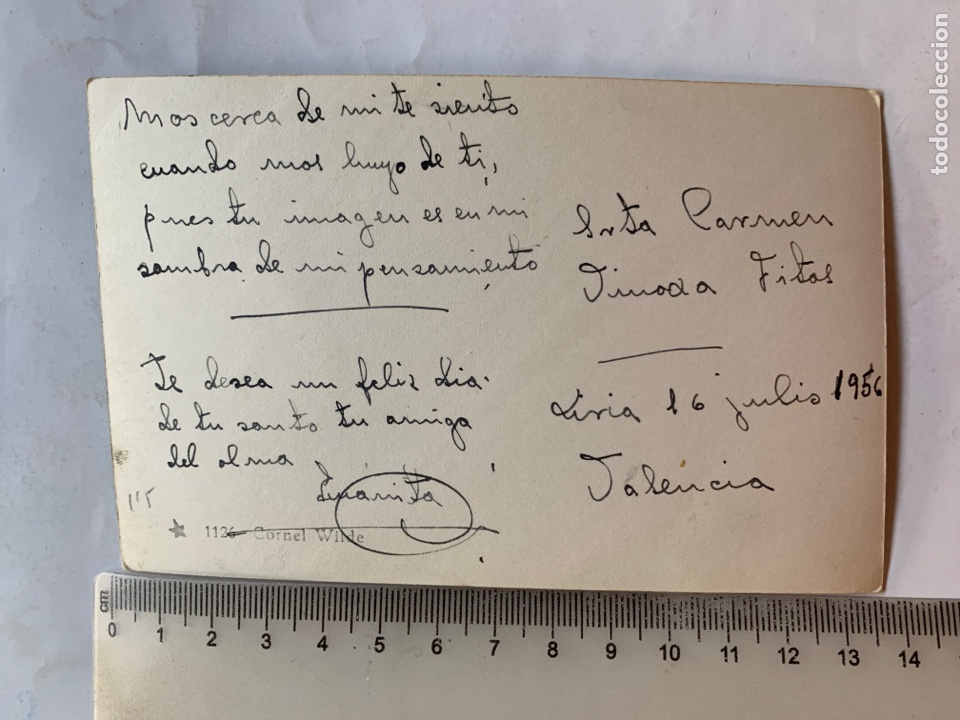 Mas cerca de mi te siento
cuando mas huyo de ti,
pues tu imagen es en mi
sombra de mi pensamiento
Te desea un feliz dia
de tu santo tu amiga
del alma
Juanita
1'5
1126 - Cornel Wilde
Srta Carmen
Fitas
Liria 16 julio 1956
Valencia
todocoleccion
cm
0 1 2 3 4 5 6 7 8 9 10 11 12 13 14